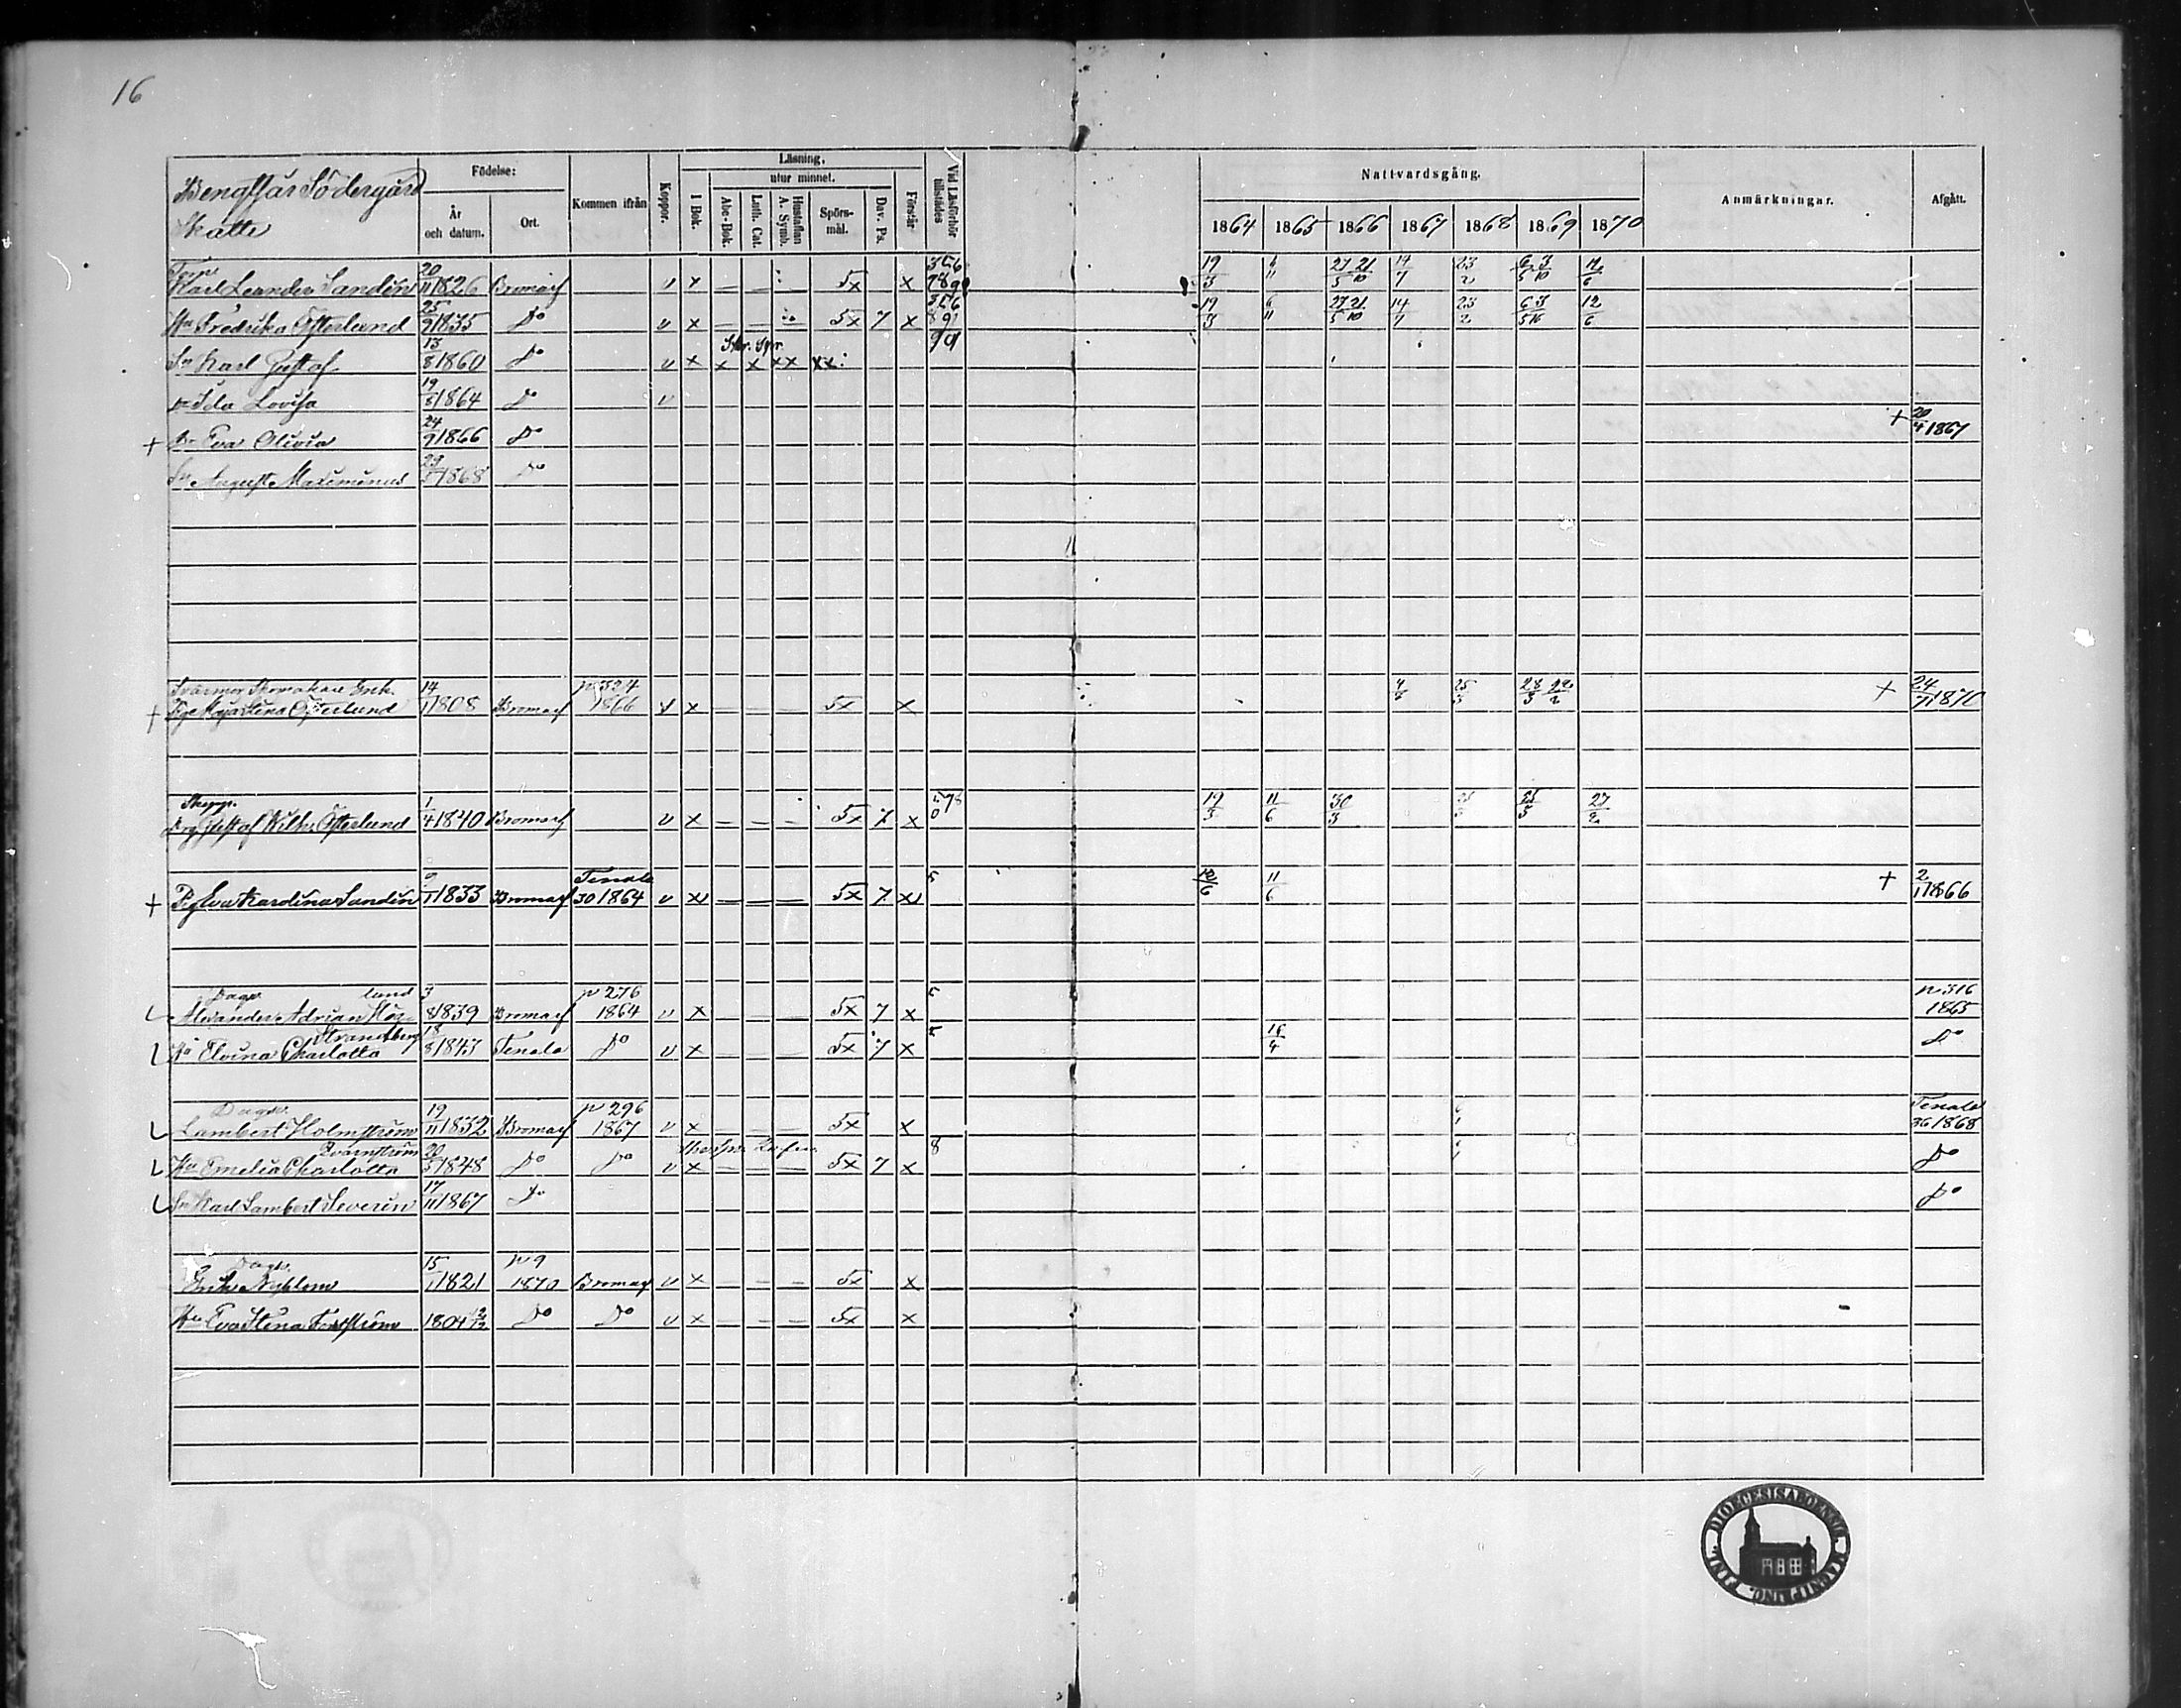 16
Bengtsår Södergård
Skatte
Födelse:
År och datum.
Ort.
Kommen ifrån
Koppor.
Läsning,
I Bok.
utur minnet.
Abc-Bok.
Luth. Cat.
Hustaflan A. Symb.
Spörs-mål.
Dav. Ps.
Förstår
Vid Läsförhör tillstädes
Nattvardsgång.
1864 1865 1866 1867 1868 1869 1870
Anmärkningar.
Afgått.
Torp.
Karl Leander Sandin 20/11 1826 Bromarf v x — — 5x x 19/3 6/11 27/5 21/10 14/7 23/2 6/5 3/10 12/6
Hu Fredrika Österlund 25/9 1835 Do v x — — 5x 7 x 19/3 6/11 27/5 21/10 14/7 23/2 6/5 3/10 12/6
Sn Karl Gustaf 13/8 1860 Do v x x x xx xx
Dr Ida Lovisa 19/8 1864 Do v
+ Dr Eva Olivia 24/9 1866 Do + 20/4 1867
Sn August Maximinus 29 1868 Do
Svärmor Skomakare Enk.
+ Maja Stina Österlund 14/1 1808 Bromarf p 324 1866 v x — — — 5x x 28/3 + 24/7 1870
Skepp.
Drg Gustaf Wilh. Österlund 1/4 1840 Bromarf v x — — — 5x 7 x 578 0 19/3 11/6 30/3 25/3 27/2
+ Pig Eva Karolina Sandin 9/1 1833 Bromarf Tenala 30 1864 v x — — — 5x 7 x 5 12/6 11/6 + 2/1 1866
Dagk. lund
Alexander Adrian Hög- 3/8 1839 Bromarf p 276 1864 v x — — — 5x 7 x 5 p 316 1865
Strandberg
Hu Elvina Charlotta 18/8 1843 Tenala Do v x — — — 5x 7 x 5 16/4 Do
Dagk.
Lambert Holmström 19/11 1832 Bromarf p 296 1867 v x — — — 5x x Tenala 36 1868
Qvarnström
Hu Emelia Charlotta 20/5 1848 Do Do v x — — — 5x 7 x 8 Do
Sn Karl Lambert Severin 17/11 1867 Do Do
Dagk.
Erik Nyblom 15/1 1821 p 9 1870 Bromarf v x — — — 5x x
Hu Eva Stina 1804 Do Do v x — — — 5x x
DIOECESIS ABOENSIS MAGNI PRINC. FINL.